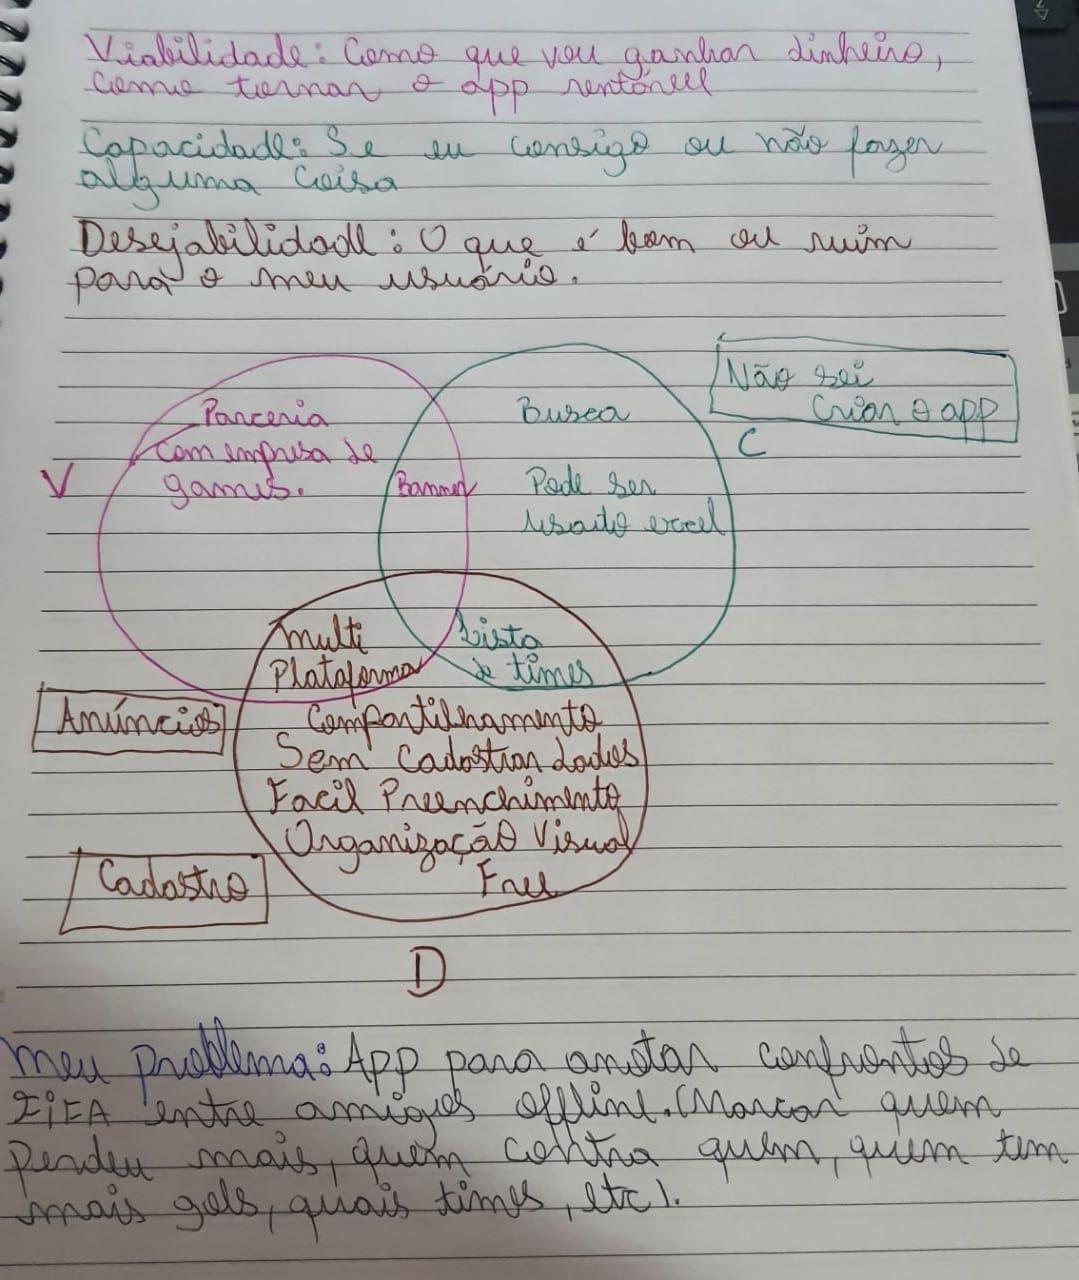 Viabilidade: Como que vou ganhar dinheiro,
como tornar o app rentável
Capacidade: Se eu consigo ou não fazer
alguma coisa
Desejabilidade: O que é bom ou ruim
para o meu usuário.
Não sei
criar o app
Parceria
com empresa de
games.
Busca
C
V
Banner
Pode ser
usado excel
Multi
Plataforma
Lista
de times
Anúncios
Compartilhamento
Sem Cadastrar dados
Facil Preenchimento
Organização Visual
Cadastro
Free
D
Meu problema: App para anotar confrontos de
FIFA entre amigos offline. (Marcar quem
perdeu mais, quem contra quem, quem tem
mais gols, quais times, etc).